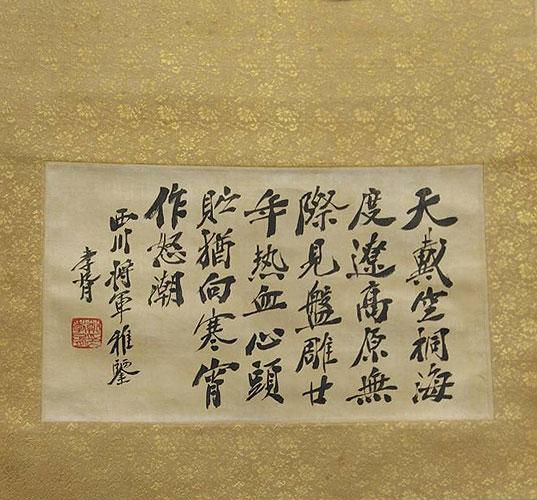 天戴空桐海
度遼高原無
際見盤雕廿
年熱血心頭
貯猶向寒宵
作怒潮
西川將軍雅鑒
孝胥